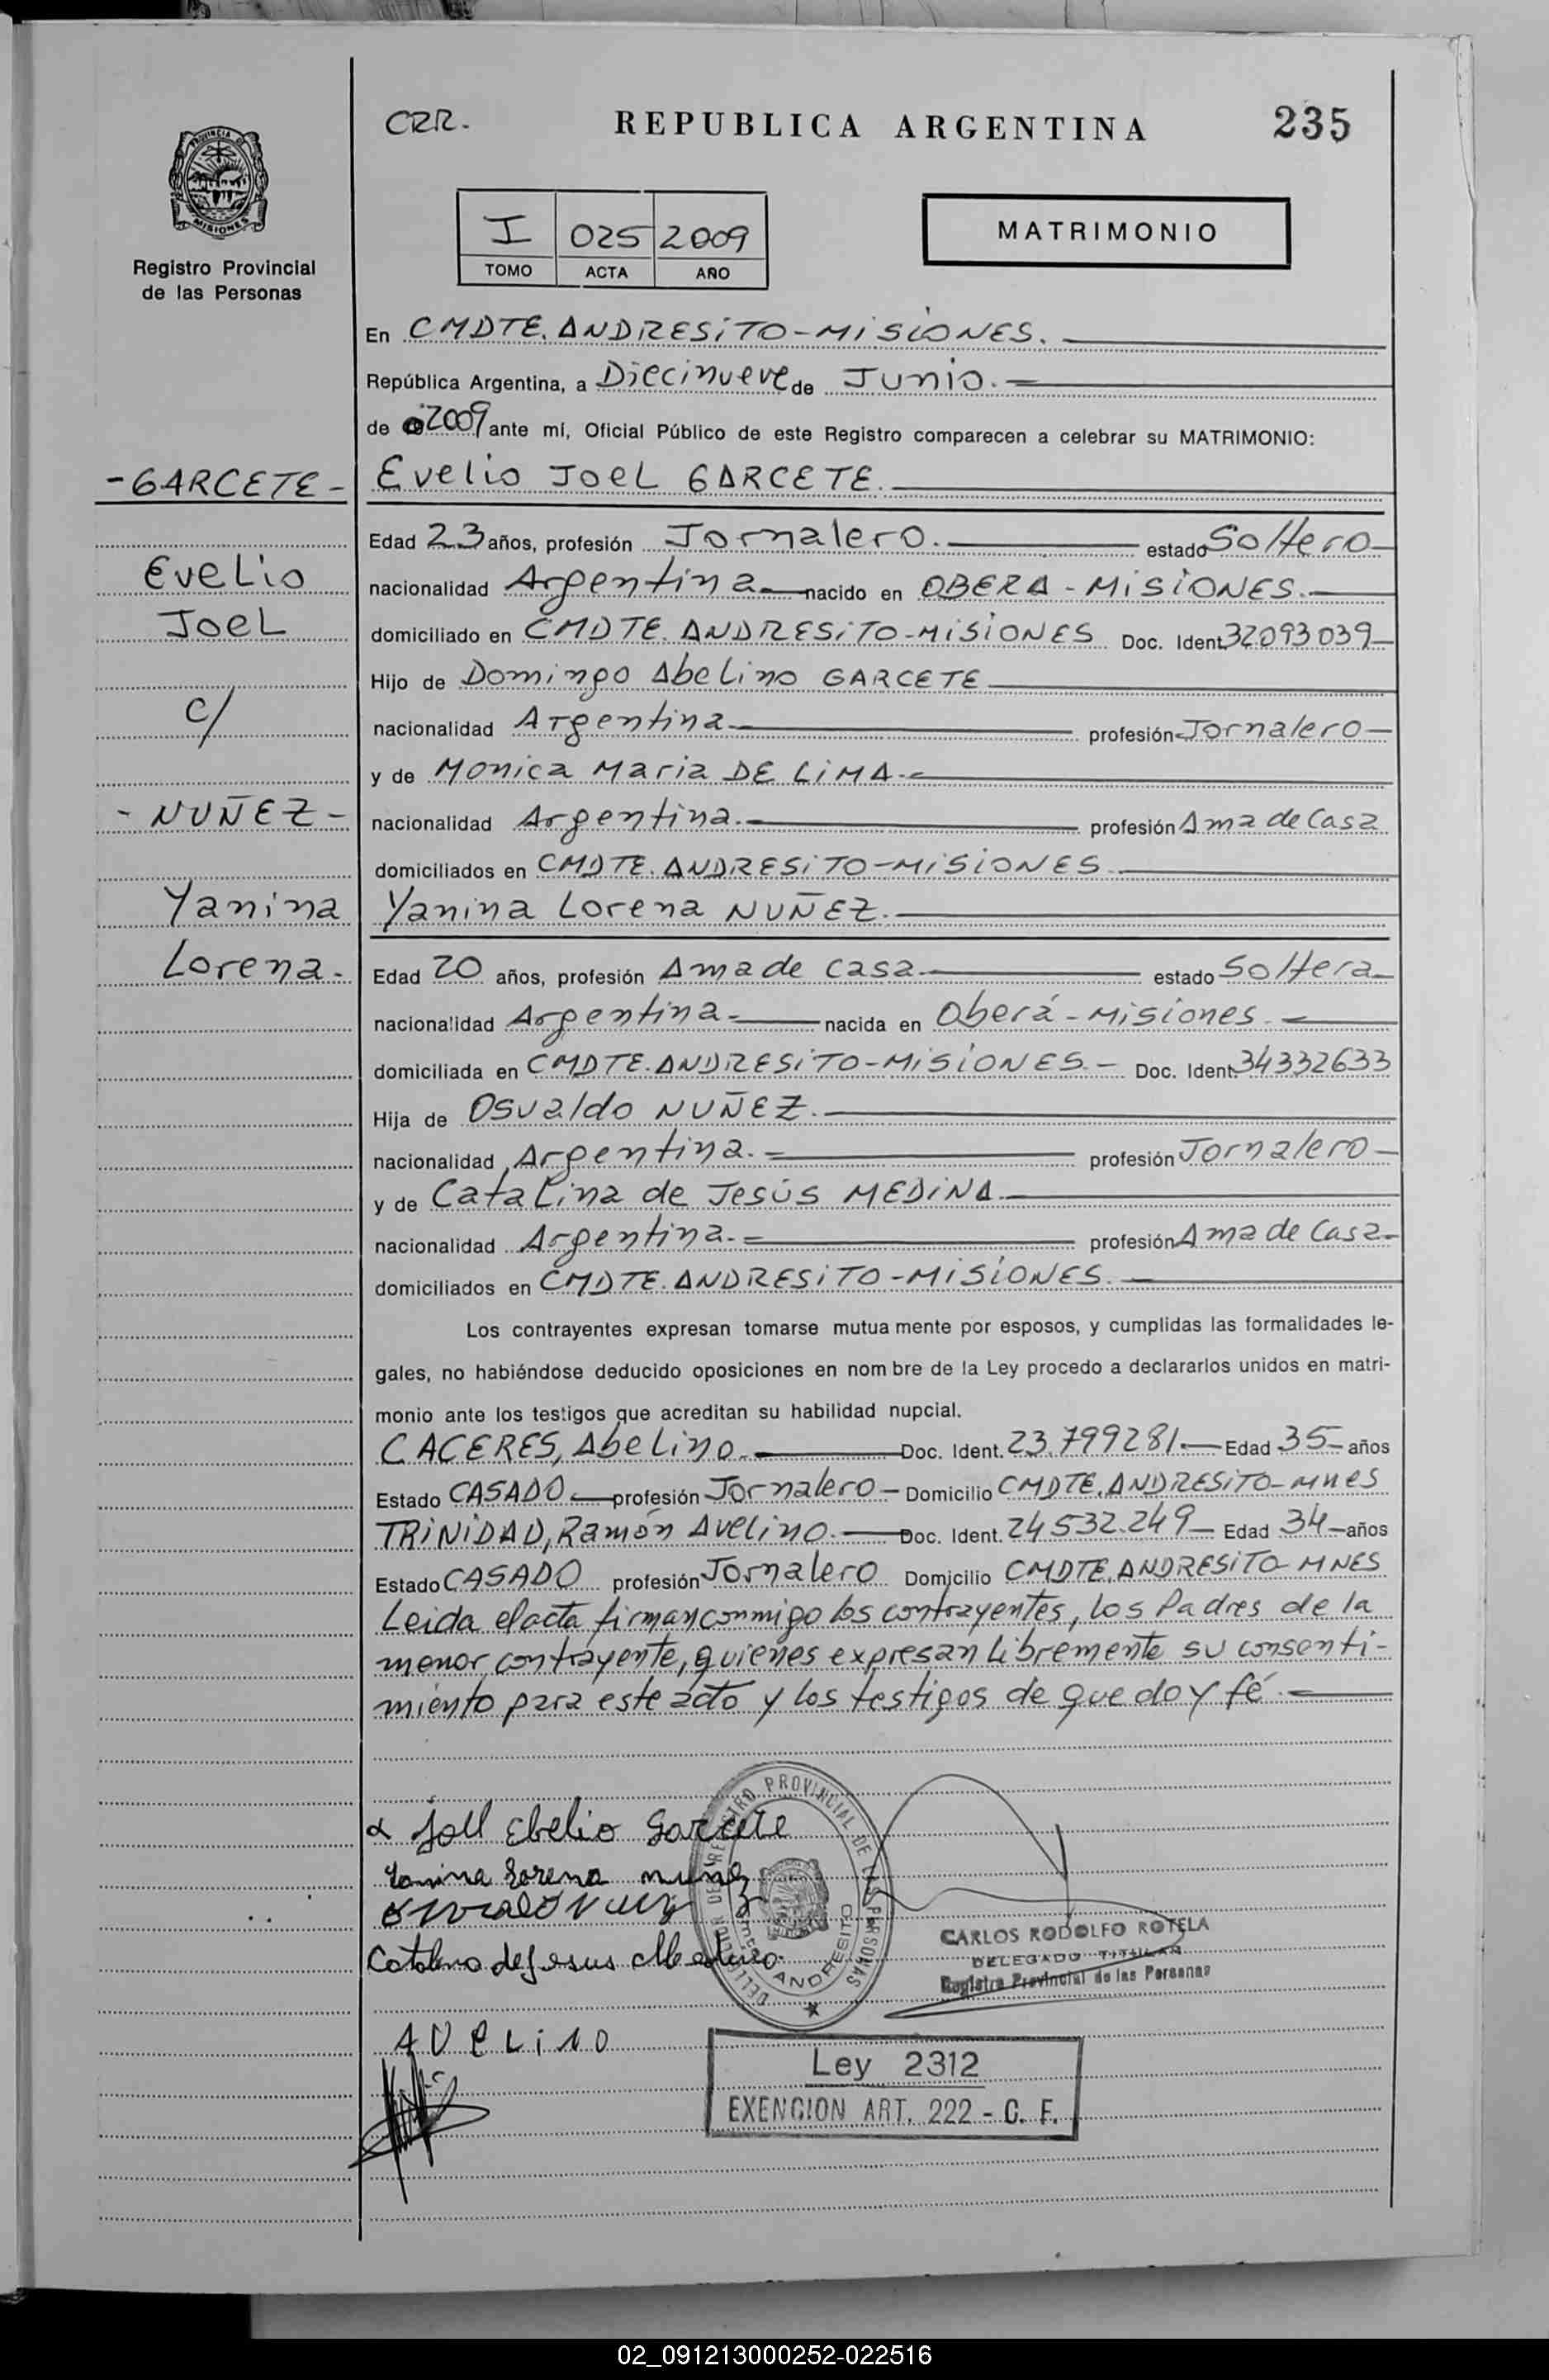 CRR.
REPUBLICA ARGENTINA
235
PROVINCIA DE
MISIONES
Registro Provincial
de las Personas
I 025 2009
TOMO ACTA AÑO
MATRIMONIO
En CMDTE. ANDRESITO-MISIONES.
República Argentina, a Diecinueve de Junio.
de 2009 ante mí, Oficial Público de este Registro comparecen a celebrar su MATRIMONIO:
-GARCETE-
Evelio Joel GARCETE.
Edad 23 años, profesión Jornalero. estado Soltero
Evelio
nacionalidad Argentina nacido en OBERA-MISIONES.
Joel
domiciliado en CMDTE. ANDRESITO-MISIONES Doc. Ident. 32093039
Hijo de Domingo Abelino GARCETE
c/
nacionalidad Argentina profesión Jornalero
y de Monica Maria DE LIMA.
- NUÑEZ -
nacionalidad Argentina. profesión Ama de Casa
domiciliados en CMDTE. ANDRESITO-MISIONES.
Yanina
Yanina Lorena NUÑEZ.
Lorena.
Edad 20 años, profesión Ama de casa. estado Soltera
nacionalidad Argentina. nacida en Oberá-Misiones.
domiciliada en CMDTE. ANDRESITO-MISIONES.- Doc. Ident. 34332633
Hija de Osvaldo NUÑEZ.
nacionalidad Argentina. profesión Jornalero
y de Catalina de Jesús MEDINA.
nacionalidad Argentina. profesión Ama de Casa
domiciliados en CMDTE. ANDRESITO-MISIONES.
Los contrayentes expresan tomarse mutua mente por esposos, y cumplidas las formalidades le-
gales, no habiéndose deducido oposiciones en nom bre de la Ley procedo a declararlos unidos en matri-
monio ante los testigos que acreditan su habilidad nupcial.
CACERES, Abelino. Doc. Ident. 23.799281. Edad 35 años
Estado CASADO profesión Jornalero Domicilio CMDTE. ANDRESITO-Mnes
TRINIDAD, Ramón Avelino. Doc. Ident. 24532.249 Edad 34 años
Estado CASADO profesión Jornalero Domicilio CMDTE. ANDRESITO-MNES
Leida el acta firman conmigo los contrayentes, los Padres de la
menor contrayente, quienes expresan libremente su consenti-
miento para este acto y los testigos de que doy fé.
REGISTRO PROVINCIAL DE LAS PERSONAS
ANDRESITO
Joel Ebelio Garcete
Yanina Lorena nuñez
Catalina de Jesus Medina
CARLOS RODOLFO ROTELA
DELEGADO TITULAR
Registro Provincial de las Personas
AVELINO
Ley 2312
EXENCION ART. 222 - C. F.
02_091213000252-022516